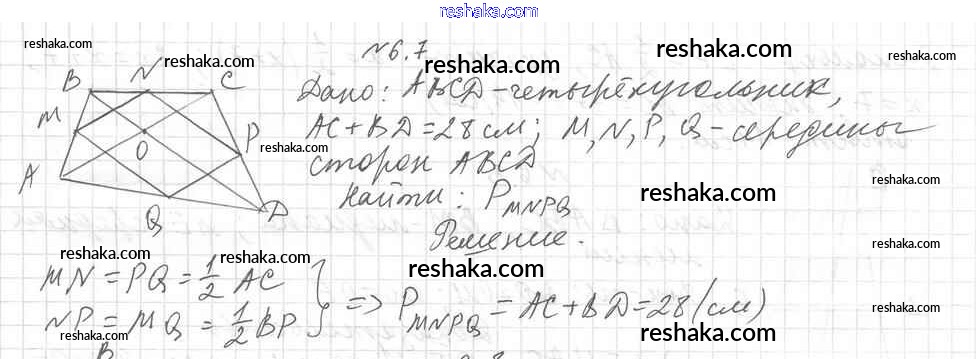 reshaka.com
№6.7
reshaka.com
reshaka.com
reshaka.com
reshaka.com
reshaka.com
B N C
M
P
O
A
Q
D
Дано: ABCD-четырёхугольник,
AC+BD=28 см; M,N,P,Q-середины
сторон ABCD
Найти: P MNPQ
Решение.
reshaka.com
reshaka.com
reshaka.com
reshaka.com
reshaka.com
MN=PQ=1/2 AC
NP=MQ=1/2 BP } => P MNPQ = AC+BD=28 (см)
reshaka.com
reshaka.com
reshaka.com
reshaka.com
reshaka.com
reshaka.com
B